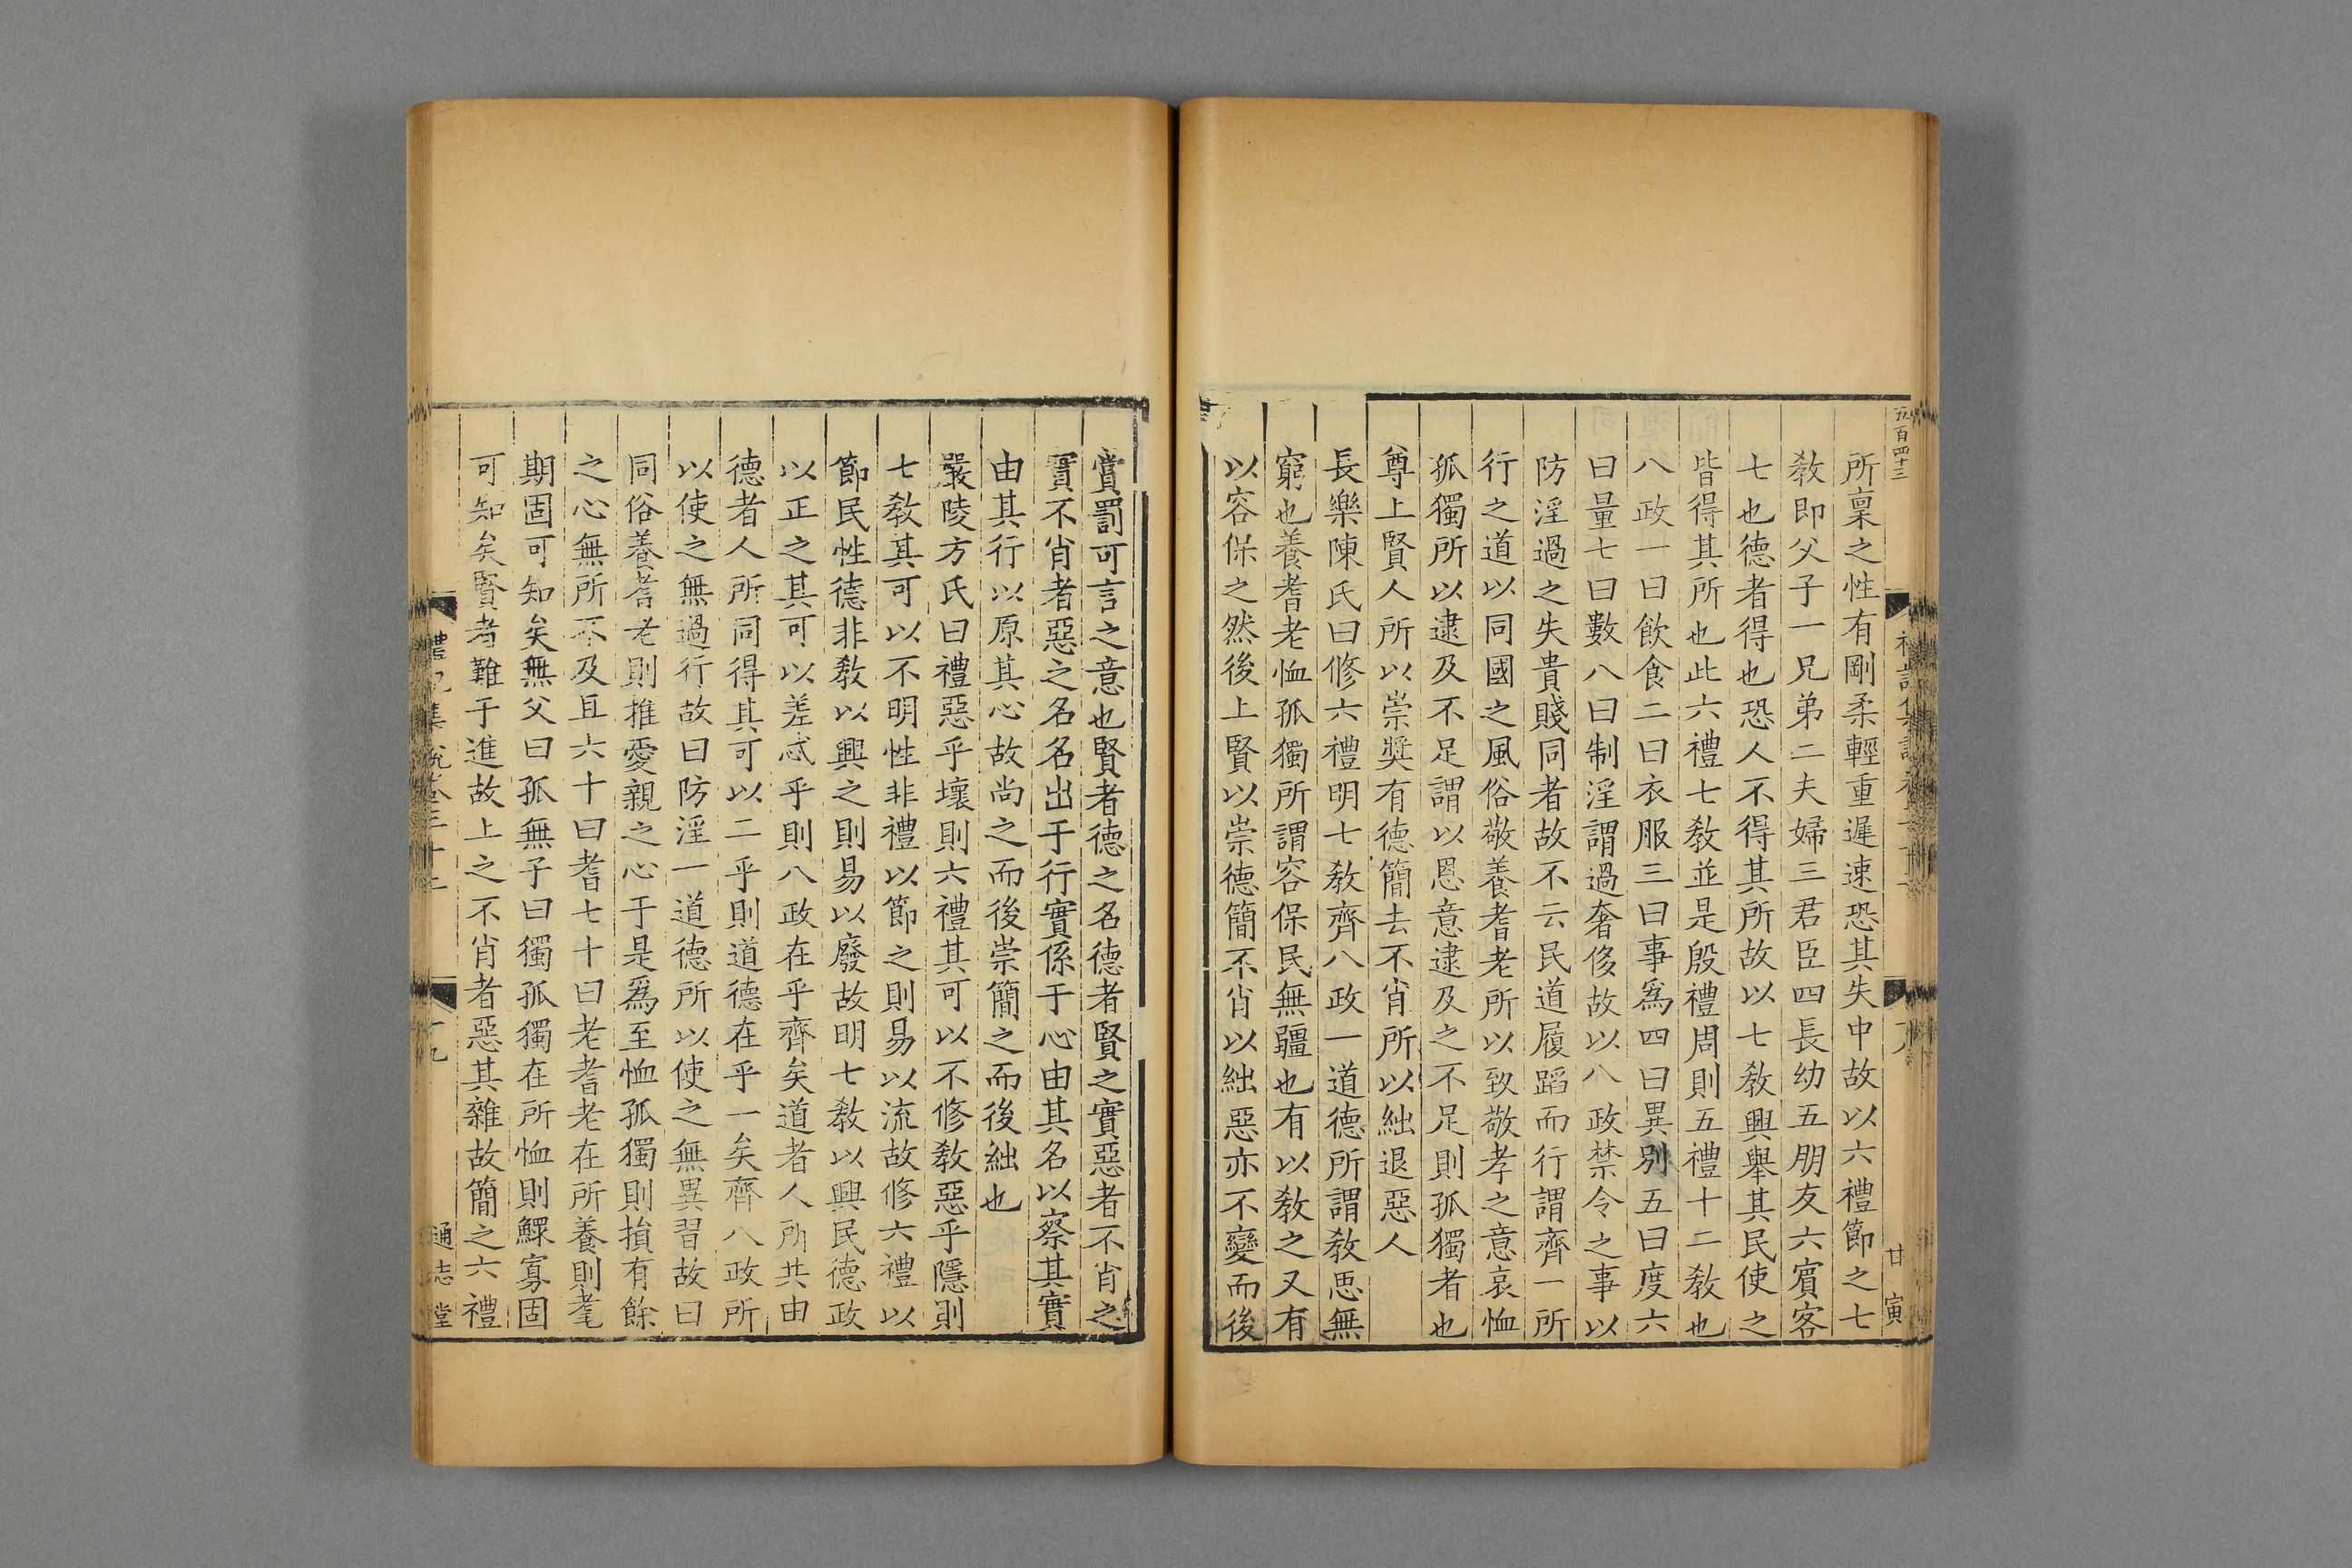 五百四十三
甘寅
所稟之性有剛柔輕重遲速恐其失中故以六禮節之七
敎即父子一兄弟二夫婦三君臣四長幼五朋友六賓客
七也德者得也恐人不得其所故以七敎興舉其民使之
皆得其所也此六禮七敎並是殷禮周則五禮十二敎也
八政一曰飲食二曰衣服三曰事爲四曰異别五曰度六
曰量七曰數八曰制淫謂過奢侈故以八政禁令之事以
防淫過之失貴賤同者故不云民道履蹈而行謂齊一所
行之道以同國之風俗敬養耆老所以致敬孝之意哀恤
孤獨所以逮及不足謂以恩意逮及之不足則孤獨者也
尊上賢人所以崇奬有德簡去不肖所以絀退惡人
長樂陳氏曰修六禮明七敎齊八政一道德所謂敎思無
窮也養耆老恤孤獨所謂容保民無疆也有以敎之又有
以容保之然後上賢以崇德簡不肖以絀惡亦不變而後
賞罰可言之意也賢者德之名德者賢之實惡者不肖之
實不肖者惡之名名出于行實係于心由其名以察其實
由其行以原其心故尚之而後崇簡之而後絀也
嚴陵方氏曰禮惡乎壞則六禮其可以不修敎惡乎隱則
七敎其可以不明性非禮以節之則易以流故修六禮以
節民性德非敎以興之則易以廢故明七敎以興民德政
以正之其可以差忒乎則八政在乎齊矣道者人所共由
德者人所同得其可以二乎則道德在乎一矣齊八政所
以使之無過行故曰防淫一道德所以使之無異習故曰
同俗養耆老則推愛親之心于是爲至恤孤獨則損有餘
之心無所不及且六十曰耆七十曰老耆老在所養則耄
期固可知矣無父曰孤無子曰獨孤獨在所恤則鰥寡固
可知矣賢者難于進故上之不肖者惡其雜故簡之六禮
禮記集說卷三十二
十九
通志堂